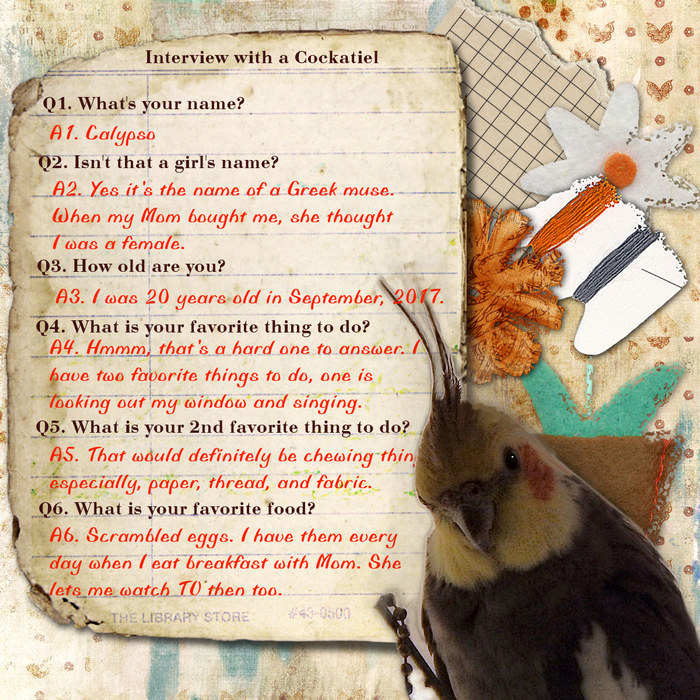 Interview with a Cockatiel
Q1. What's your name?
A1. Calypso
Q2. Isn't that a girl's name?
A2. Yes it's the name of a Greek muse.
When my Mom bought me, she thought
I was a female.
Q3. How old are you?
A3. I was 20 years old in September, 2017.
Q4. What is your favorite thing to do?
A4. Hmmm, that's a hard one to answer. I
have two favorite things to do, one is
looking out my window and singing.
Q5. What is your 2nd favorite thing to do?
A5. That would definitely be chewing thin
especially, paper, thread, and fabric.
Q6. What is your favorite food?
A6. Scrambled eggs. I have them every
day when I eat breakfast with Mom. She
lets me watch TV then too.
THE LIBRARY STORE #43-0500